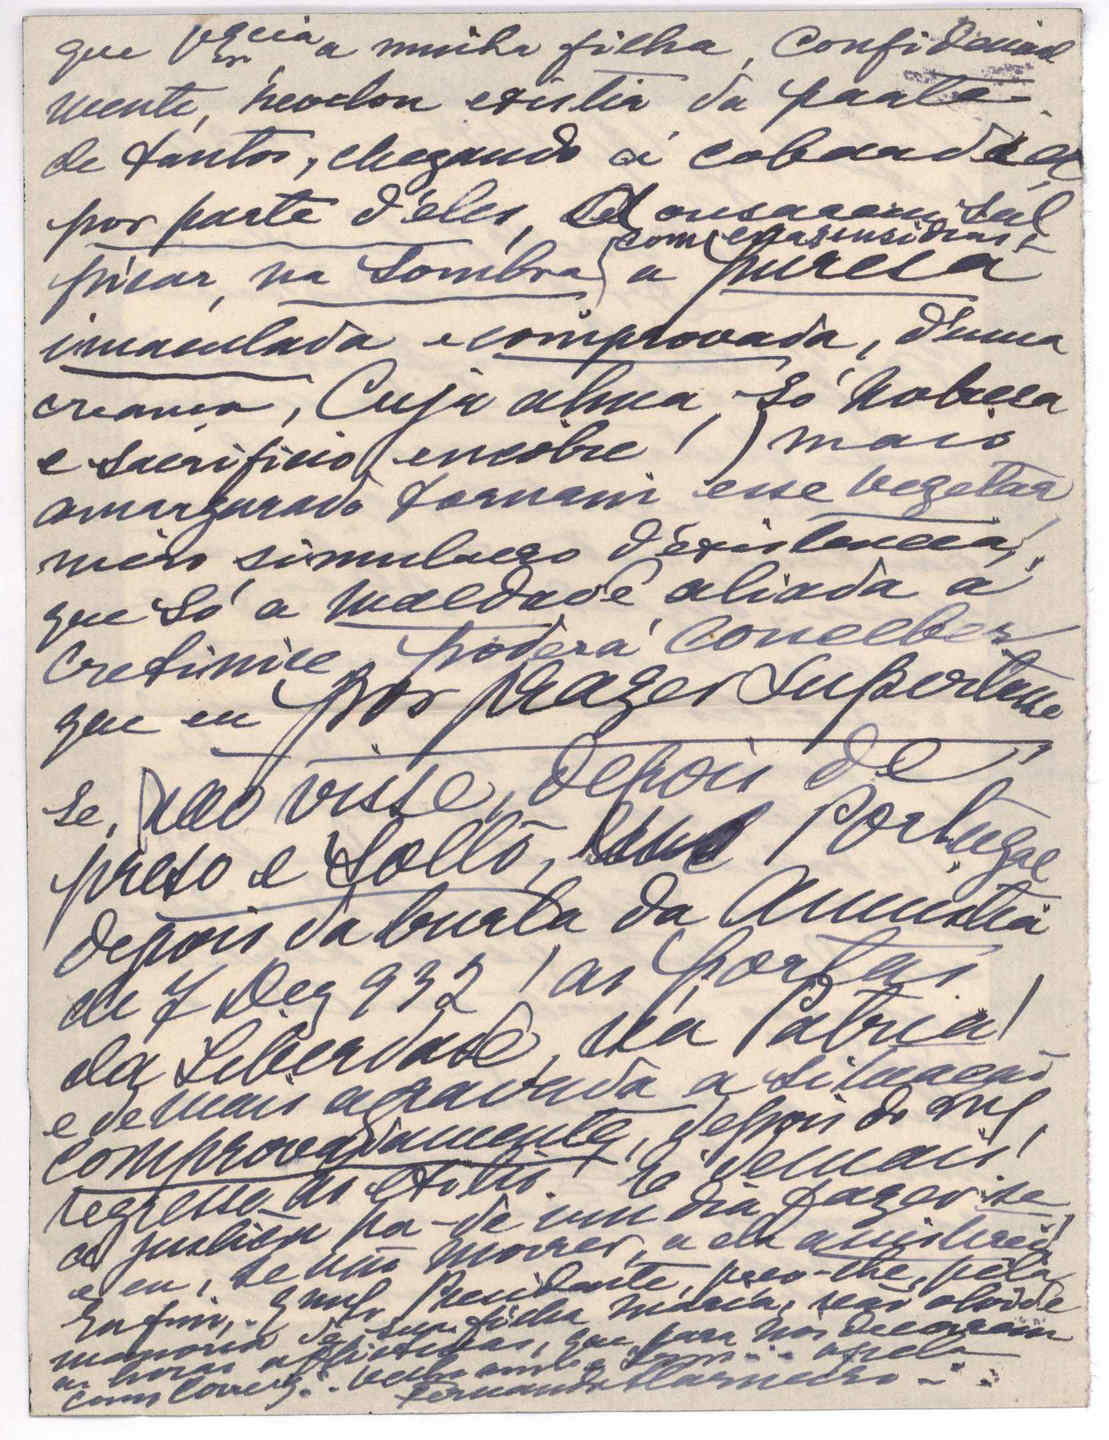 que a minha filha, confidencial
mente, existia da parte
de tantos, chegando á cobardia
por parte d'eles, ousarem sal
com essas insidias,
picar, na sombra a puresa
imaculada e comprovada, d'uma
creança, Cuja alma, só nobresa
e sacrificio, encobre!) mais
amargurado tornam esse vegetar
mero simulacro d'existencia,
que só a maldade aliada á
cretinice, poderá conceber
que eu por prazer suportasse
se, não visse, depois de
preso e solto, em Portugal
depois da burla da Amnistia
de 7 Dez 932! as portas
da Liberdade, na Patria!
e de mais agravada a situação
comprovadamente, depois do meu
regresso do exilio! É demais!
a justiça ha-de um dia fazer-se
e eu, se não morrer, a ela assistirei
Enfim, Presidente, peço-lhe, pela
memoria de sua filha Maria, não olvide
as horas que para nós decorrem
com
Fernando